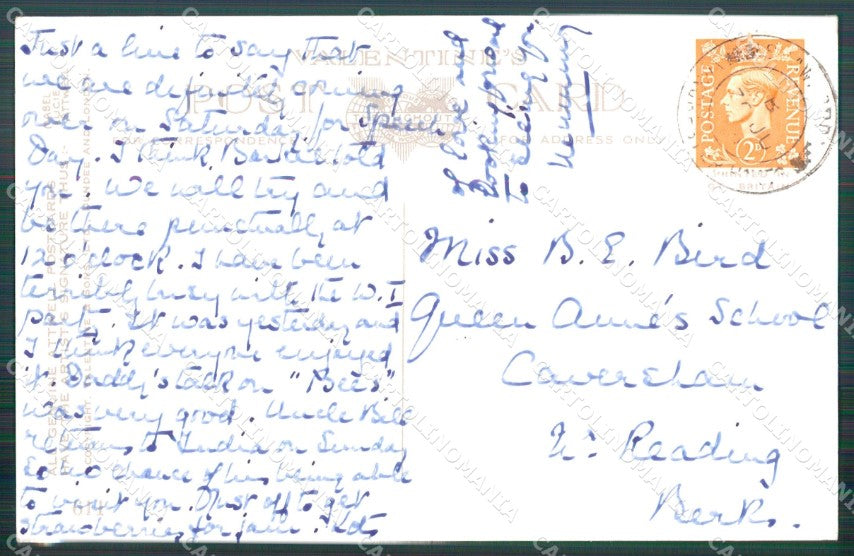 Just a line to say that
we are definitely coming
over on Saturday for Speech
Day. I think Barbara told
you. We will try and
be there punctually at
12 o'clock. I have been
terribly busy with the W.I
party. It was yesterday and
I think everyone enjoyed
it. Daddy's talk on "Bees"
was very good. Uncle Bill
returns to India on Sunday
So no chance of his being able
to visit you. Just off to get
strawberries for jam. Lots
of love and
looking forward
to seeing you
Mummy
VALENTINE'S
POST CARD
FOR ADDRESS ONLY
POSTAGE REVENUE
2D
Miss B. E. Bird
Queen Anne's School
Caversham
Nr Reading
Berks.
CARTOLINOMANIA